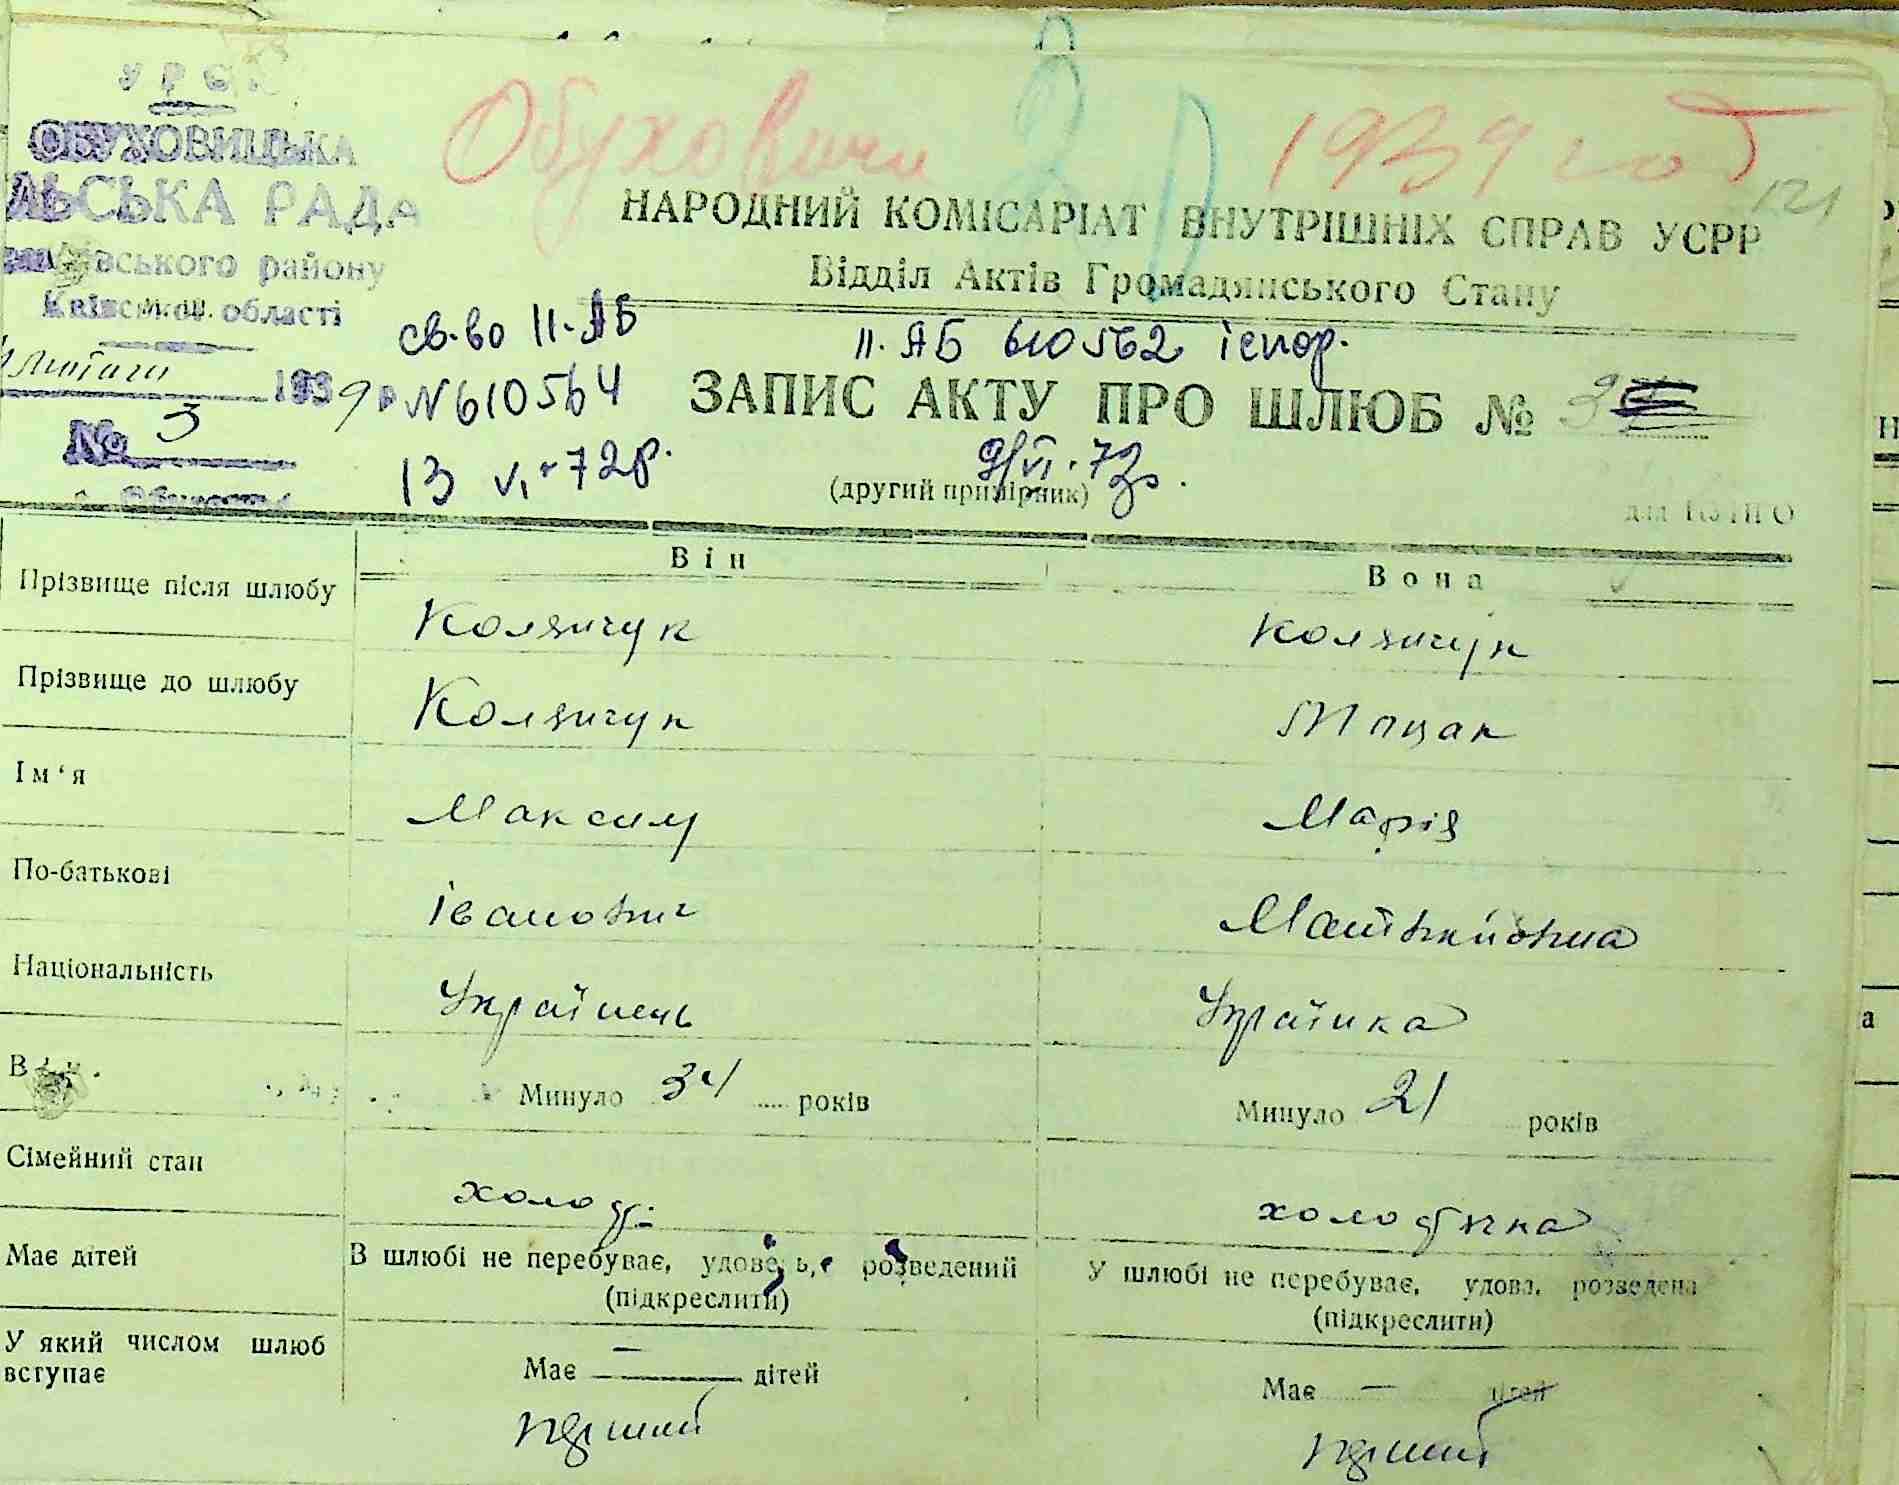 Обуховичи 1939 год
121
УРСР
ОБУХОВИЦЬКА
ЛЬСЬКА РАДА
вського району
Київської області
лютого 1939 р
№ 3
НАРОДНИЙ КОМІСАРІАТ ВНУТРІШНІХ СПРАВ УСРР
Відділ Актів Громадянського Стану
св-во II-АБ
№610564
13 VI-72р.
II-АБ 610562 іспор.
9/VI-72р.
ЗАПИС АКТУ ПРО ШЛЮБ № 3
(другий примірник)
Він Вона
Прізвище після шлюбу Колязчук Колязчук
Прізвище до шлюбу Колязчук Моцак
Ім'я Максим Марія
По-батькові Іванович Матвійовна
Національність Українець Українка
Вік Минуло 34 років Минуло 21 років
Сімейний стан холод. холодячка
Має дітей В шлюбі не перебуває, удовець, розведений У шлюбі не перебуває, удова, розведена
(підкреслити) (підкреслити)
У який числом шлюб
вступає
Має — дітей Має — дітей
перший перший